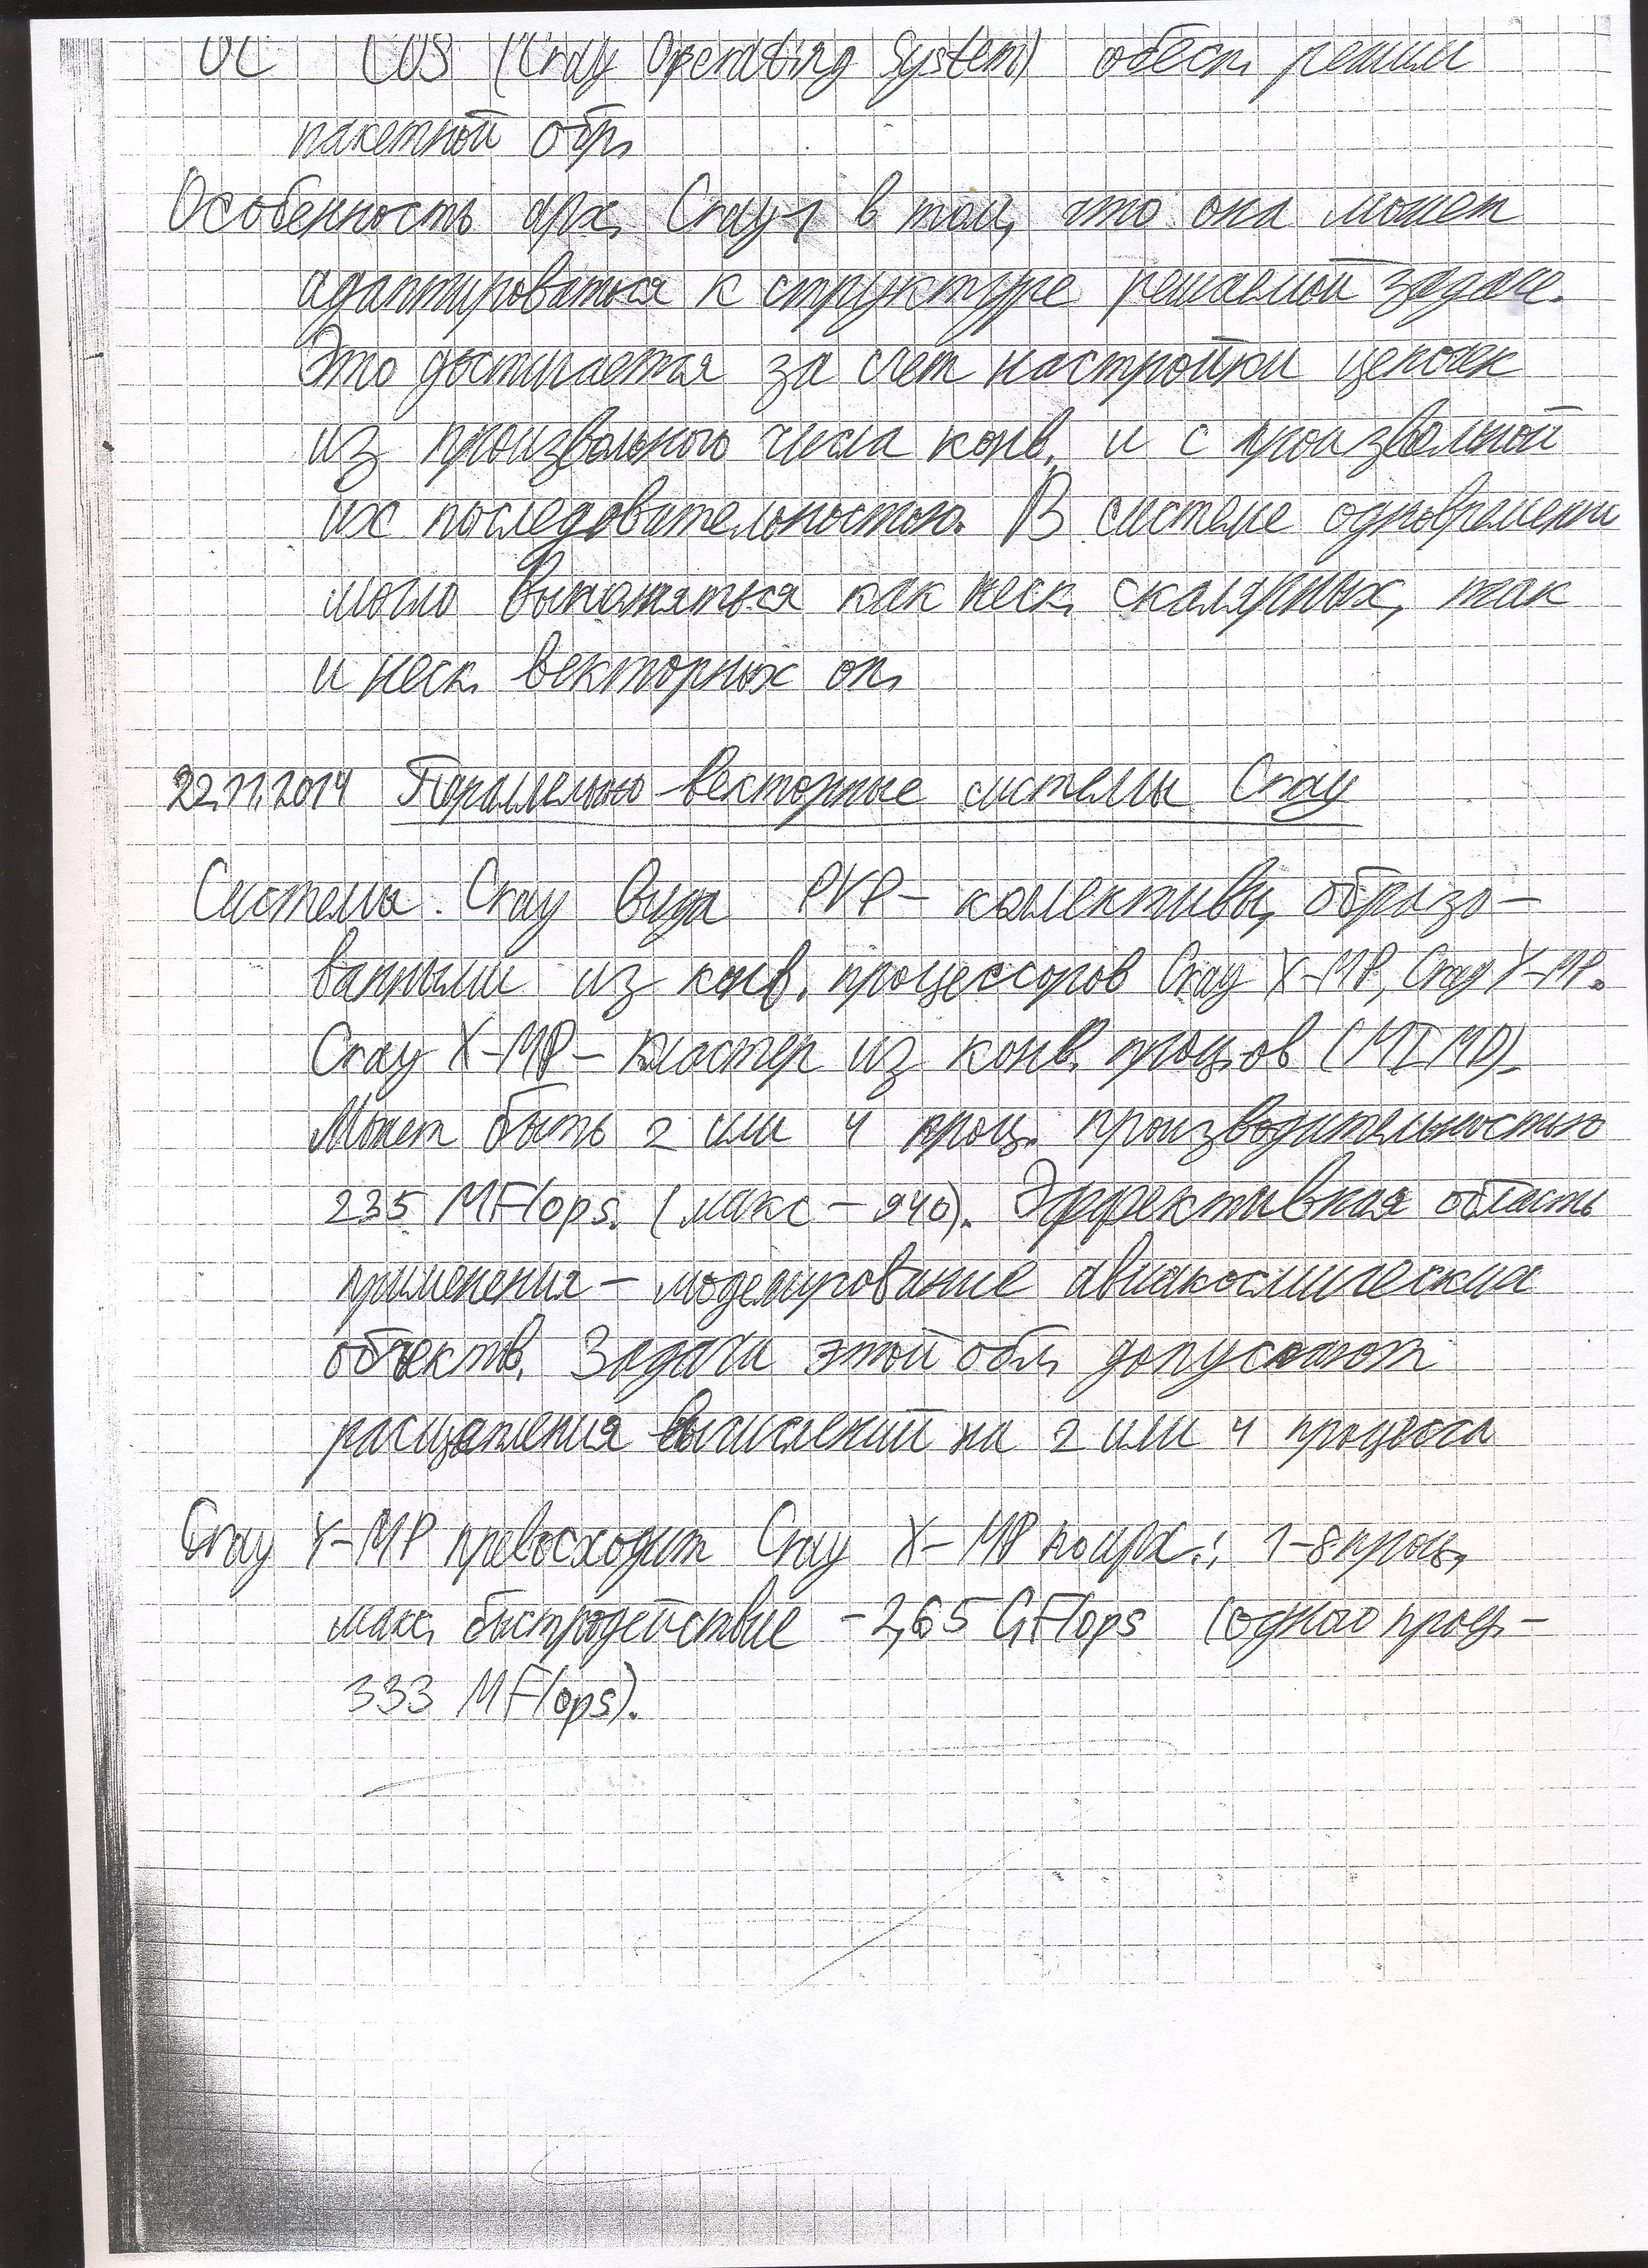 ОС COS (Cray Operating System) обесп. режим
пакетной обр.
Особенность арх. Cray-1 в том, что она может
адаптироваться к структуре решаемой задаче.
Это достигается за счет настройки цепочек
из произвольного числа конв. и с произвольной
их последовательностью. В системе одновременно
могло выполняться как неск. скалярных, так
и неск. векторных оп.
22.11.2014 Параллельно-векторные системы Cray
Системы Cray вида PVP - коллективы, образо-
ванными из конв. процессоров Cray X-MP, Cray Y-MP.
Cray X-MP - кластер из конв. проц.ов (MIMD).
Может быть 2 или 4 проц. производительностью
235 MFlops. (макс - 940). Эффективная область
применения - моделирование авиакосмических
объектв. Задачи этой обл. допускают
расщепления вычислений на 2 или 4 процесса
Cray Y-MP превосходит Cray X-MP по арх.: 1-8 проц,
макс. быстродействие - 2,65 GFlops (одного проц. -
333 MFlops).